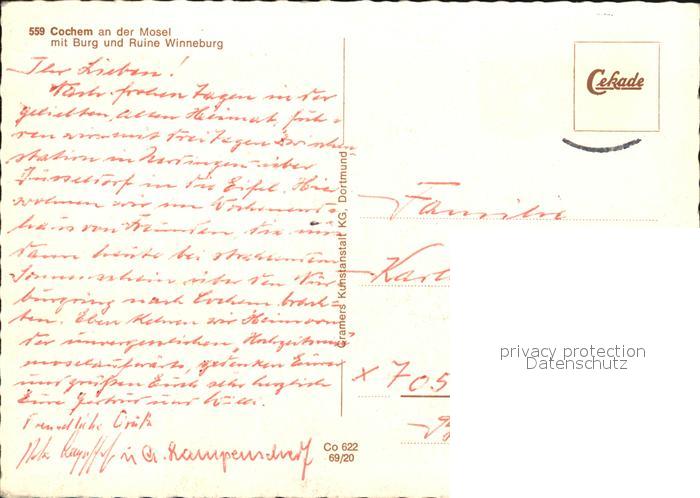 559 Cochem an der Mosel
mit Burg und Ruine Winneburg
Cekade
Ihr Lieben!
Nach frohen Tagen in der
geliebten, alten Heimat, fuh-
ren wir mit drei Tagen Zwischen
station in über
Düsseldorf in die Eifel. Hier
wohnen wir im Wochenend-
haus von Freunden die uns
dann heute bei strahlendem
Sonnenschein über den Nür
burgring nach Cochem brach-
ten. Eben kehren wir Heim von
der unvergesslichen
moselaufwärts, gedenken Eurer
und grüßen Euch sehr herzlich
Eure und Willi.
Freundliche Grüße
u.
Cramers Kunstanstalt KG, Dortmund
Co 622
69/20
Familie
Karl
x 705
privacy protection
Datenschutz